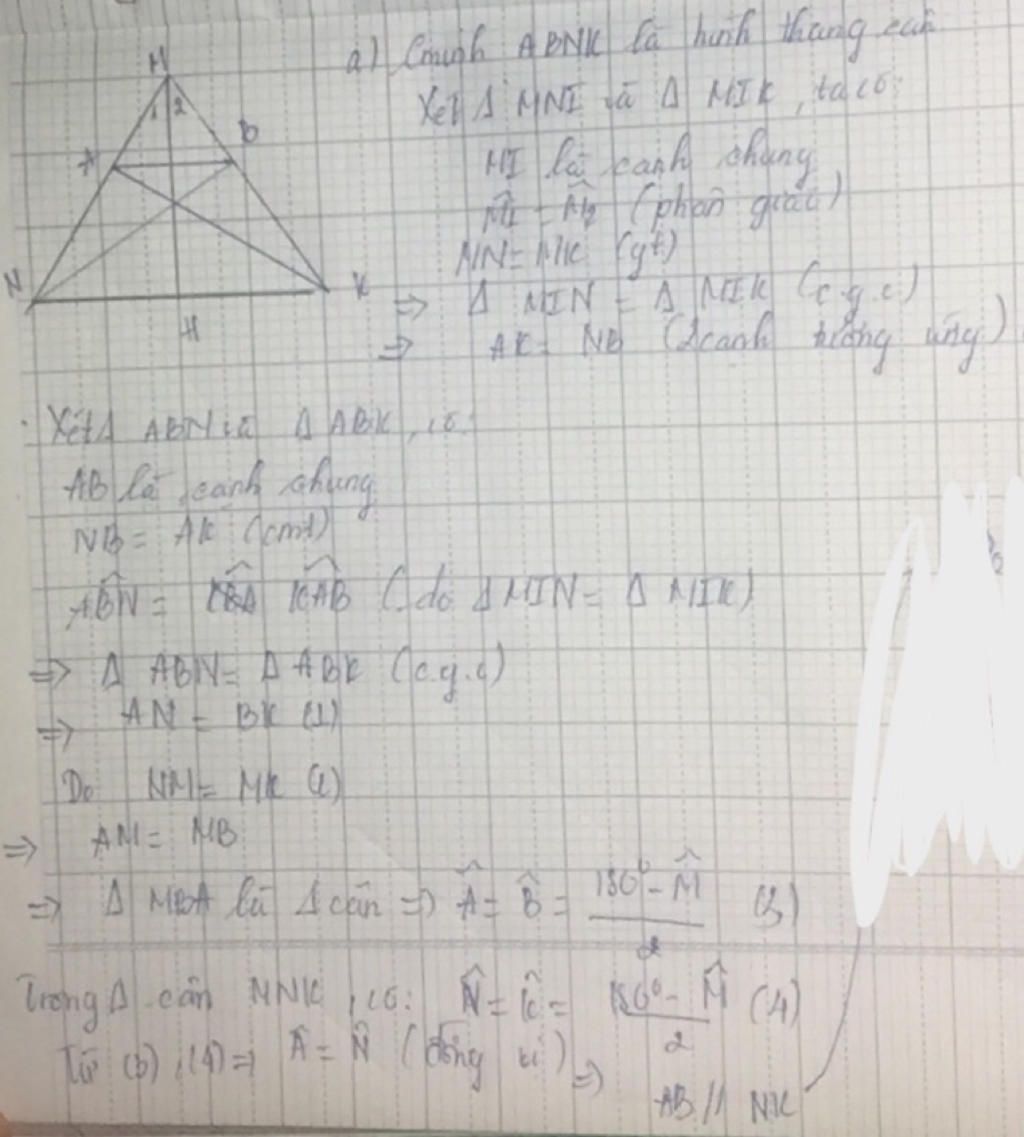 M
1 2
A
B
N
K
H
a) Cminh ABNK là hình thang cân
Xét Δ MNI và Δ MIK, ta có:
MI là cạnh chung
M̂1 = M̂2 (phân giác)
MN = MK (gt)
=> Δ MIN = Δ MIK (c.g.c)
=> AK = NB (2 cạnh tương ứng)
Xét Δ ABN và Δ ABK, có:
AB là cạnh chung
NB = AK (cmt)
ABN̂ = KAB̂ (do Δ MIN = Δ MIK)
=> Δ ABN = Δ ABK (c.g.c)
=> AN = BK (1)
Do NM = MK (2)
=> AM = MB
=> Δ MBA là Δ cân => Â = B̂ = (180° - M̂)/2 (3)
Trong Δ cân MNK, có: N̂ = K̂ = (180° - M̂)/2 (4)
Từ (3), (4) => Â = N̂ (đồng vị) =>
AB // NK